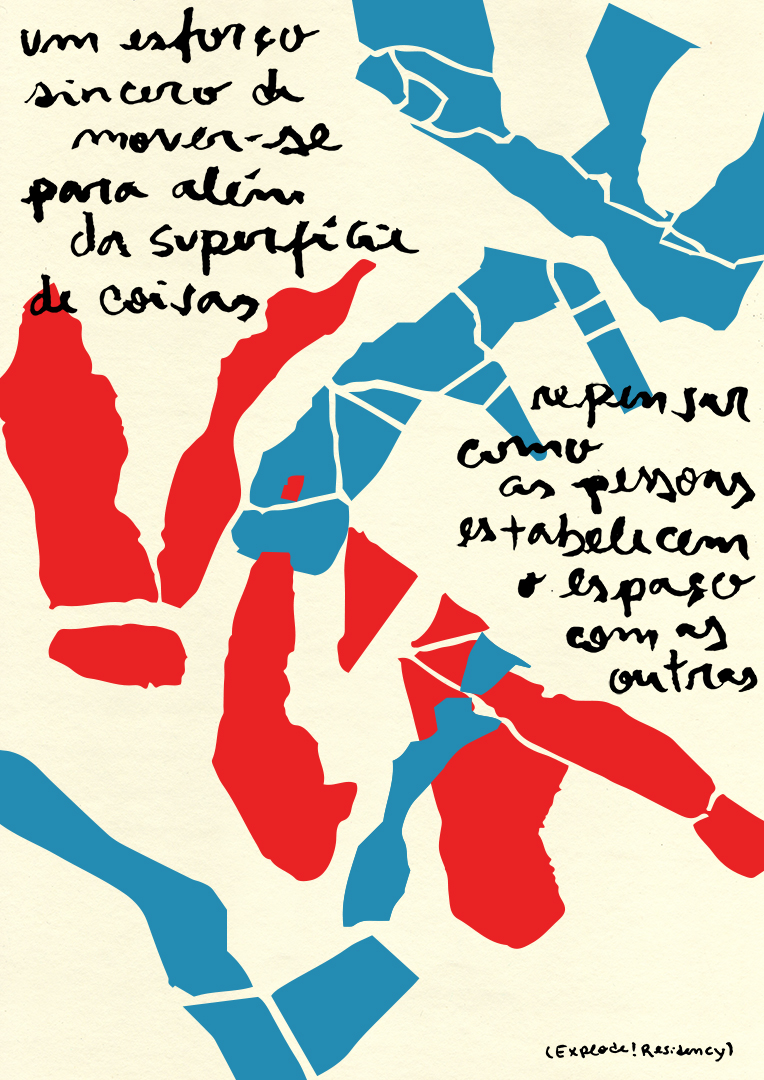 um esforço
sincero de
mover-se
para além
da superfície
de coisas
repensar
como
as pessoas
estabelecem
o espaço
com as
outras
(Explode! Residency)